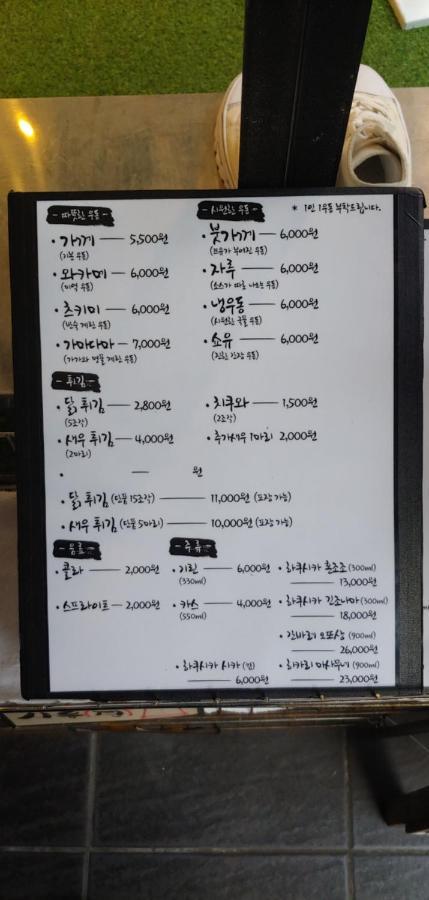 - 따뜻한 우동 -
• 가께 — 5,500원
(기본 우동)
• 와카메 — 6,000원
(미역 우동)
• 츠키미 — 6,000원
(반숙 계란 우동)
• 가마다마 — 7,000원
- 시원한 우동 -
* 1인 1우동 부탁드립니다.
• 붓가께 — 6,000원
(쯔유가 부어진 우동)
• 자루 — 6,000원
(소스가 따로 나오는 우동)
• 냉우동 — 6,000원
(시원한 국물 우동)
• 쇼유 — 6,000원
(진한 간장 우동)
- 튀김 -
• 닭 튀김 — 2,800원
(5조각)
• 새우 튀김 — 4,000원
(2마리)
• 치쿠와 — 1,500원
(2조각)
• 추가새우 1마리 2,000원
• — 원
• 닭 튀김 (단품 15조각) — 11,000원 (포장 가능)
• 새우 튀김 (단품 5마리) — 10,000원 (포장 가능)
- 음료 -
• 콜라 — 2,000원
• 스프라이트 — 2,000원
- 주류 -
• 기린 — 6,000원
(330ml)
• 카스 — 4,000원
(550ml)
• 하쿠시카 시카 (잔)
— 6,000원
• 하쿠시카 혼죠조 (300ml)
— 13,000원
• 하쿠시카 긴죠나마 (300ml)
— 18,000원
• 간바레 오또상 (900ml)
— 26,000원
• 히카리 마사무네 (900ml)
— 23,000원